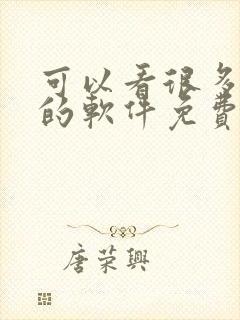 可以看很多
的軟件免費
唐荣興